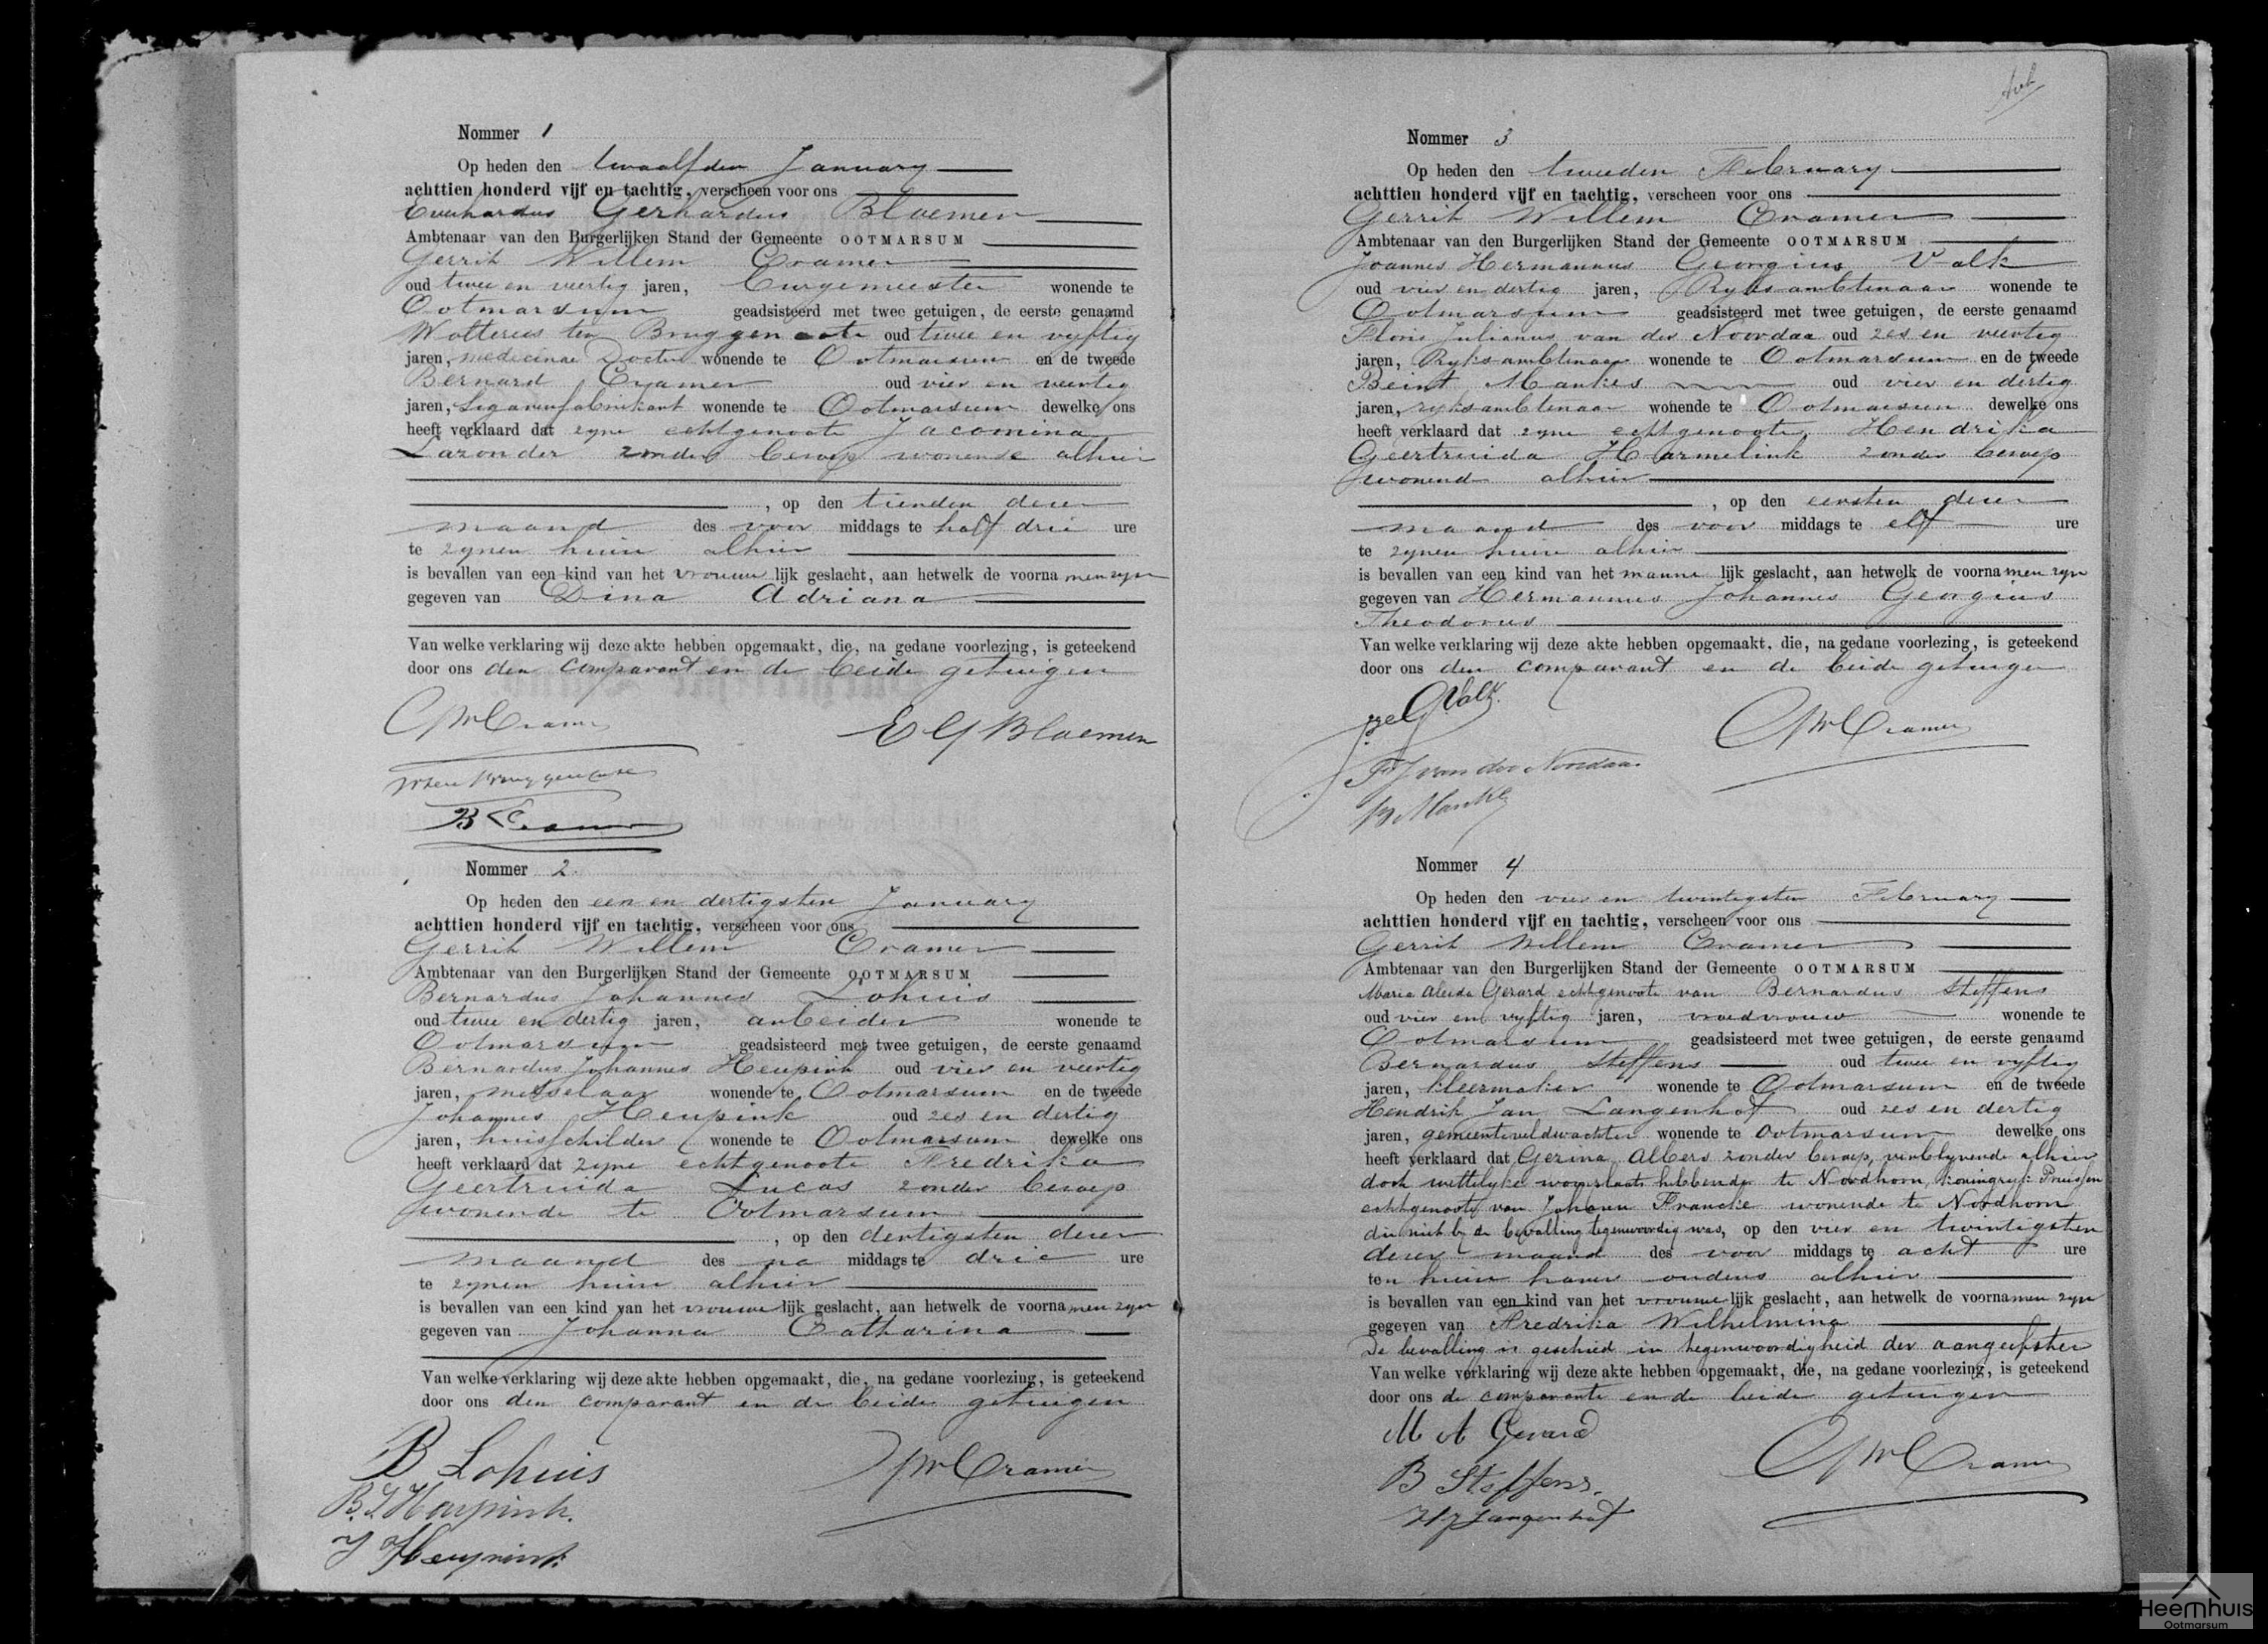 Nommer 1
Op heden den twaalfden January
achttien honderd vijf en tachtig, verscheen voor ons
Everhardus Gerhardus Bloemen
Ambtenaar van den Burgerlijken Stand der Gemeente OOTMARSUM
Gerrit Willem Cramer
oud twee en veertig jaren, burgemeester wonende te
Ootmarsum geadsisteerd met twee getuigen, de eerste genaamd
Wolterus ten Bruggencate oud twee en vyftig
jaren, medicinae Doctor wonende te Ootmarsum en de tweede
Bernard Cramer oud vier en veertig
jaren, Sigarenfabrikant wonende te Ootmarsum dewelke ons
heeft verklaard dat zyne echtgenoote Jacomina
Lazonder zonder beroep wonende alhier
, op den tienden dezer
maand des voor middags te half drie ure
te zynen huize alhier
is bevallen van een kind van het vrouwe lijk geslacht, aan hetwelk de voorna men zyn
gegeven van Dina Adriana
Van welke verklaring wij deze akte hebben opgemaakt, die, na gedane voorlezing, is geteekend
door ons den comparant en de beide getuigen
GWCramer
E G Bloemen
WtenBruggencate
B Cramer
Nommer 2.
Op heden den een en dertigsten January
achttien honderd vijf en tachtig, verscheen voor ons
Gerrit Willem Cramer
Ambtenaar van den Burgerlijken Stand der Gemeente OOTMARSUM
Bernardus Johannes Lohuis
oud twee en dertig jaren, arbeider wonende te
Ootmarsum geadsisteerd met twee getuigen, de eerste genaamd
Bernardus Johannes Heupink oud vier en veertig
jaren, metselaar wonende te Ootmarsum en de tweede
Johannes Heupink oud zes en dertig
jaren, huisschilder wonende te Ootmarsum dewelke ons
heeft verklaard dat zyne echtgenoote Fredrika
Geertruida Lucas zonder beroep
wonende te Ootmarsum
, op den dertigsten dezer
maand des na middags te drie ure
te zynen huize alhier
is bevallen van een kind van het vrouwe lijk geslacht, aan hetwelk de voorna men zyn
gegeven van Johanna Catharina
Van welke verklaring wij deze akte hebben opgemaakt, die, na gedane voorlezing, is geteekend
door ons den comparant en de beide getuigen
B Lohuis
GWCramer
B.J Heupink.
J Heupink
Nommer 3
Op heden den tweeden February
achttien honderd vijf en tachtig, verscheen voor ons
Gerrit Willem Cramer
Ambtenaar van den Burgerlijken Stand der Gemeente OOTMARSUM
Joannes Hermannus Georgius Valk
oud vier en dertig jaren, Ryksambtenaar wonende te
Ootmarsum geadsisteerd met twee getuigen, de eerste genaamd
Floris Julianus van der Noordaa oud zes en veertig
jaren, Ryksambtenaar wonende te Ootmarsum en de tweede
Beint Mankes oud vier en dertig
jaren, ryksambtenaar wonende te Ootmarsum dewelke ons
heeft verklaard dat zyne echtgenoote, Hendrika
Geertruida Harmelink zonder beroep
wonend alhier
, op den eersten dezer
maand des voor middags te elf ure
te zynen huize alhier
is bevallen van een kind van het manne lijk geslacht, aan hetwelk de voorna men zyn
gegeven van Hermannus Johannes Georgius
Theodorus
Van welke verklaring wij deze akte hebben opgemaakt, die, na gedane voorlezing, is geteekend
door ons den comparant en de beide getuigen
GValk.
GWCramer
F J van der Noordaa
B Mankes
Nommer 4
Op heden den vier en twintigsten February
achttien honderd vijf en tachtig, verscheen voor ons
Gerrit Willem Cramer
Ambtenaar van den Burgerlijken Stand der Gemeente OOTMARSUM
Maria Aleida Gerard echtgenoote van Bernardus Steffens
oud vier en vyftig jaren, vroedvrouw wonende te
Ootmarsum geadsisteerd met twee getuigen, de eerste genaamd
Bernardus Steffens oud twee en vyftig
jaren, kleermaker wonende te Ootmarsum en de tweede
Hendrik Jan Langenhof oud zes en dertig
jaren, gemeenteveldwachter wonende te Ootmarsum dewelke ons
heeft verklaard dat Gezina Albers zonder beroep, verblyvende alhier
doch wettelyke woonplaats hebbende te Nordhorn, Koningryk Pruissen
echtgenoote van Johann Francke wonende te Nordhorn
die niet by de bevalling tegenwoordig was, op den vier en twintigsten
dezer maand des voor middags te acht ure
ten huize harer ouders alhier
is bevallen van een kind van het vrouwe lijk geslacht, aan hetwelk de voorna men zyn
gegeven van Fredrika Wilhelmina
De bevalling is geschied in tegenwoordigheid der aangeefster
Van welke verklaring wij deze akte hebben opgemaakt, die, na gedane voorlezing, is geteekend
door ons de comparante en de beide getuigen
M A Gerard
GWCramer
B Steffens.
HJLangenhof
Heemhuis
Ootmarsum